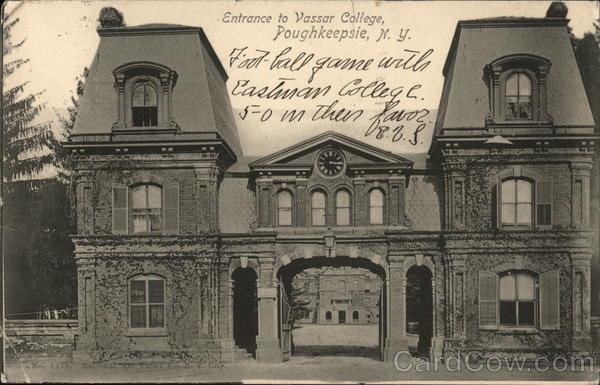 Entrance to Vassar College,
Poughkeepsie, N. Y.
Foot-ball game with
Eastman College.
5-0 in their favor
CardCow.com